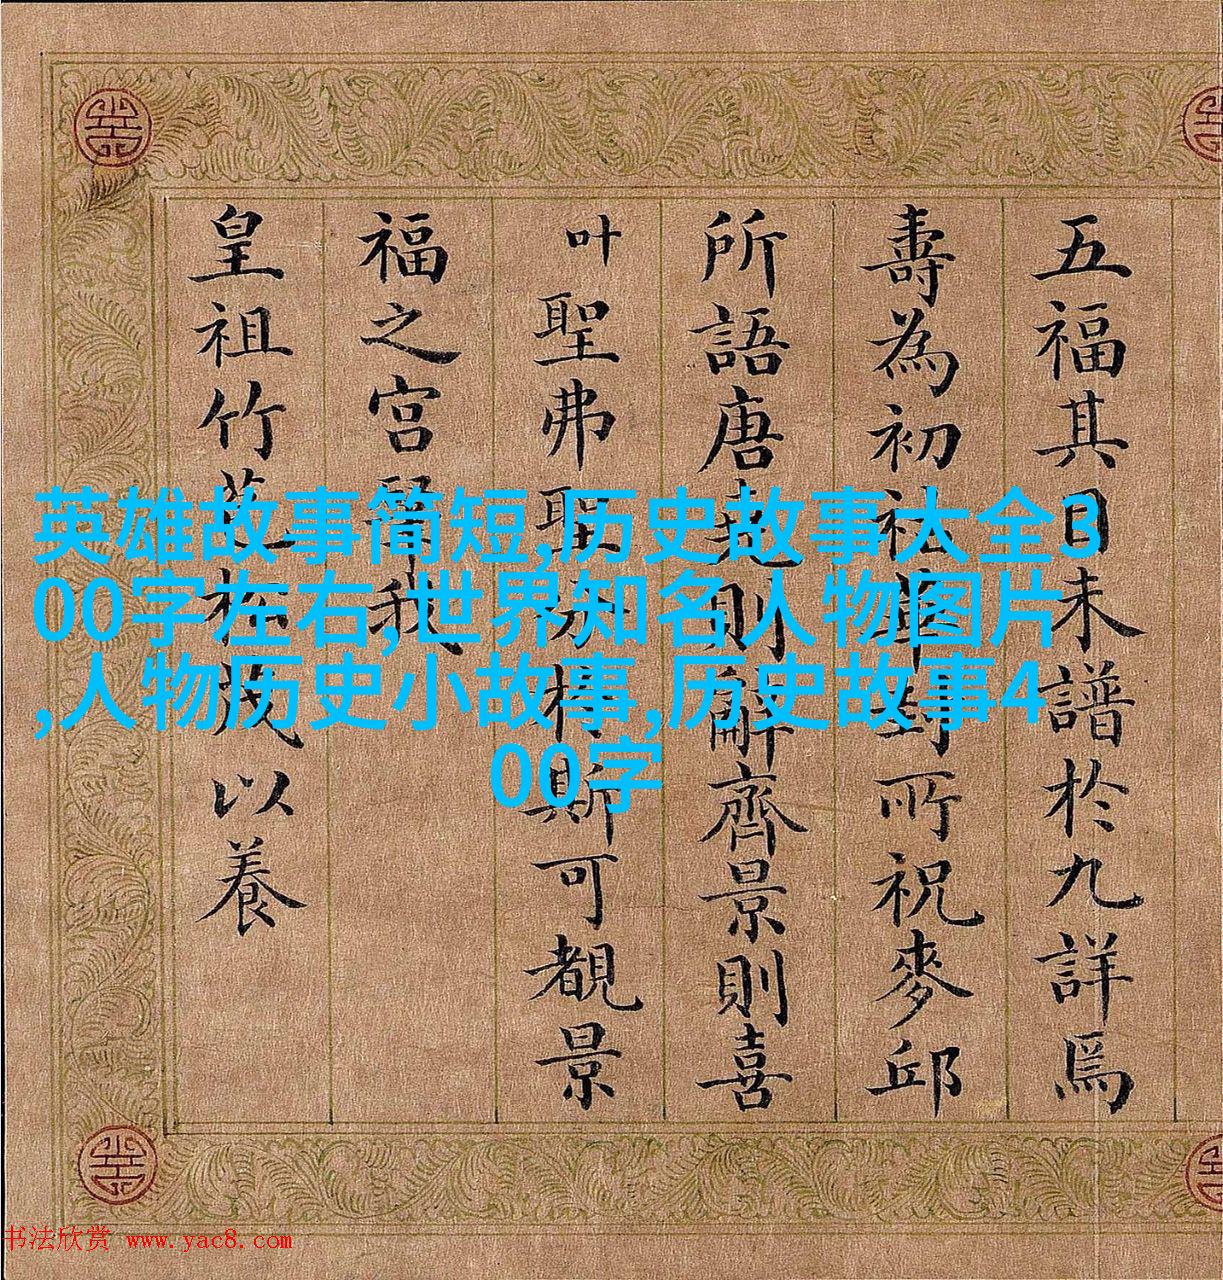 五福其日未譜於九詳焉
壽為初祉華封所祝麥邱
所語唐堯則辭齊景則喜
叶聖弗聖於斯可覩景
福之宮翠我
皇祖竹苞松茂以養
英雄故事简短,历史故事大全3
00字左右,世界知名人物图片
,人物历史小故事,历史故事4
00字
书法欣赏 www.yac8.com